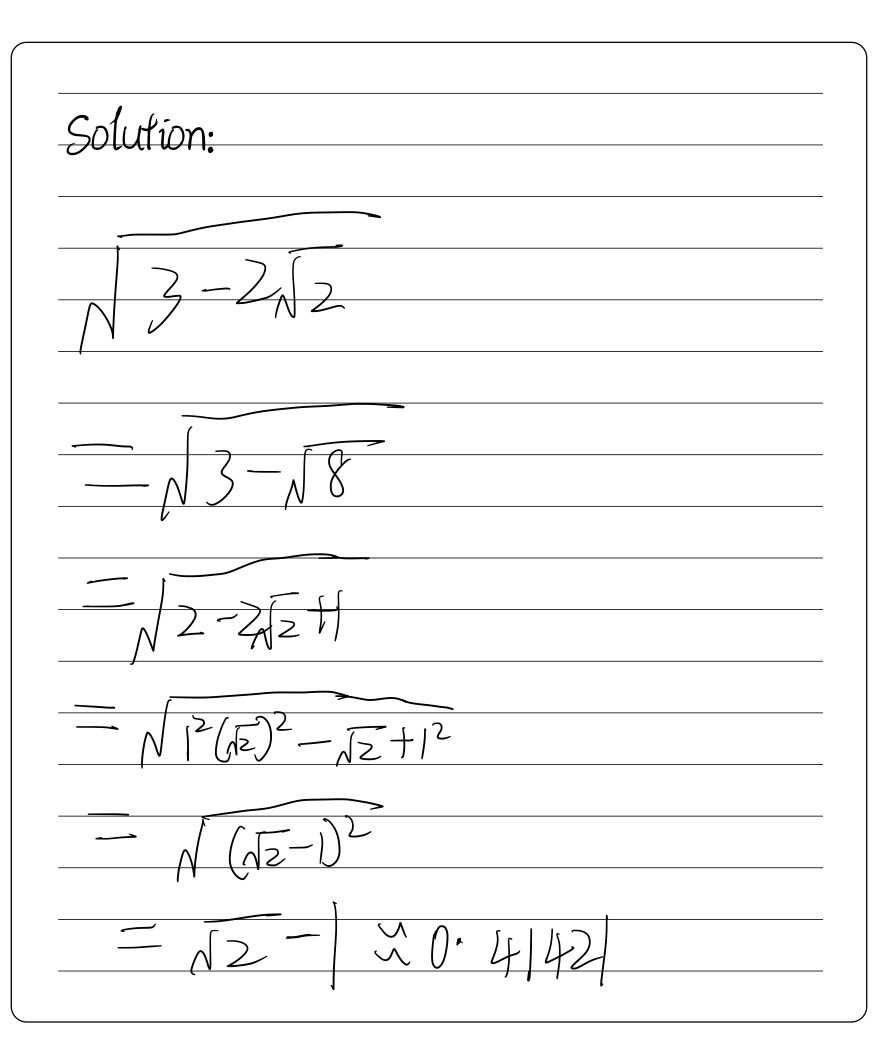 Solution:
√(3-2√2)
=√(3-√8)
=√(2-2√2+1)
=√(1²(√2)²-√2+1²)
=√((√2-1)²)
=√2-1≈0.41421